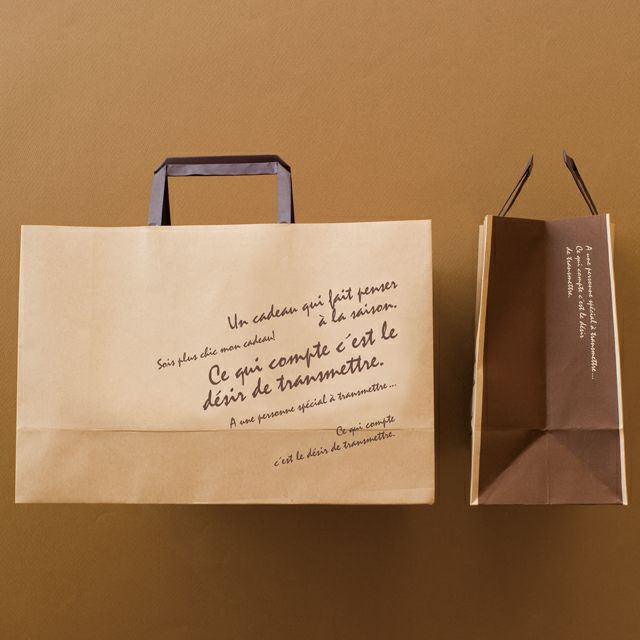 Un cadeau qui fait penser
à la saison.
Sois plus chic mon cadeau!
Ce qui compte c´est le
désir de transmettre.
A une personne spécial à transmettre...
Ce qui compte
c´est le désir de transmettre.
A une personne spécial à transmettre...
Ce qui compte c´est le désir
de transmettre.